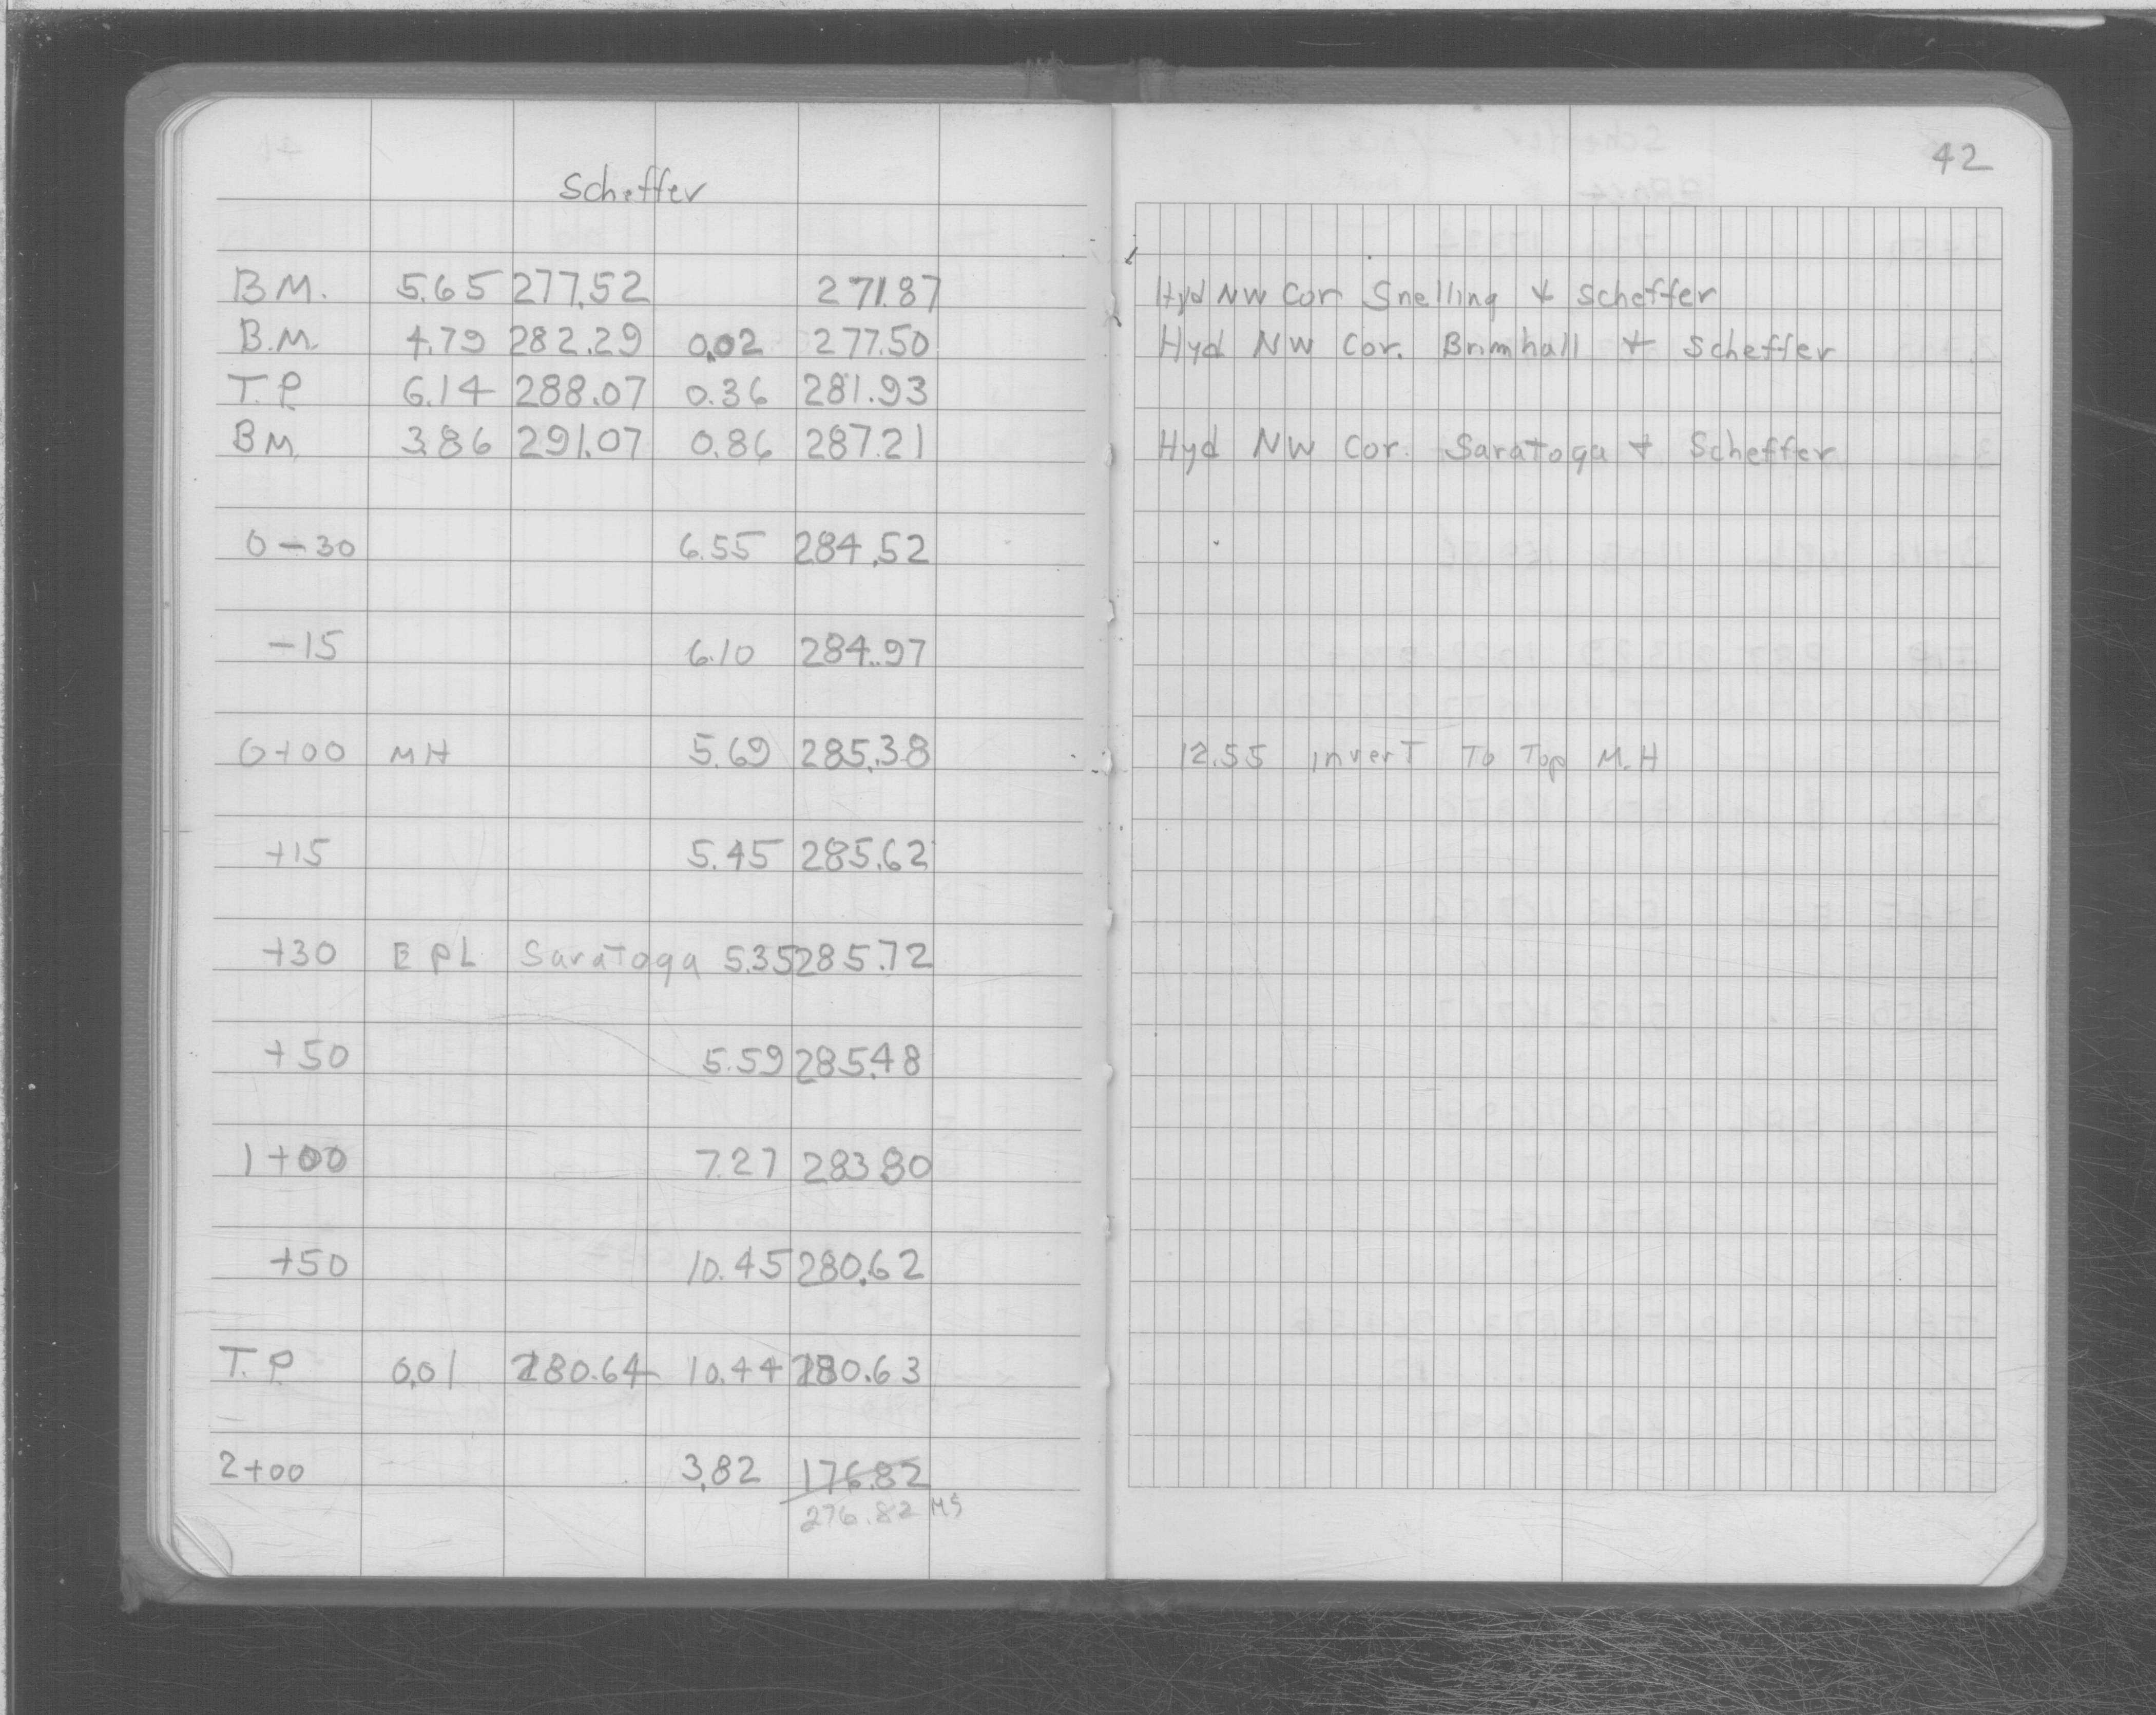 Scheffer
42
B.M. 5.65 277.52 271.87 Hyd NW Cor Snelling & Scheffer
B.M. 4.79 282.29 0.02 277.50 Hyd NW Cor. Brimhall & Scheffer
T.P. 6.14 288.07 0.36 281.93
BM. 3.86 291.07 0.86 287.21 Hyd NW Cor. Saratoga & Scheffer
0-30 6.55 284.52
-15 6.10 284.97
0+00 MH 5.69 285.38 12.55 invert To Top M.H
+15 5.45 285.62
+30 E PL Saratoga 5.35 285.72
+50 5.59 285.48
1+00 7.27 283.80
+50 10.45 280.62
T.P 0.01 280.64 10.44 280.63
2+00 3.82 176.82
276.82 MS